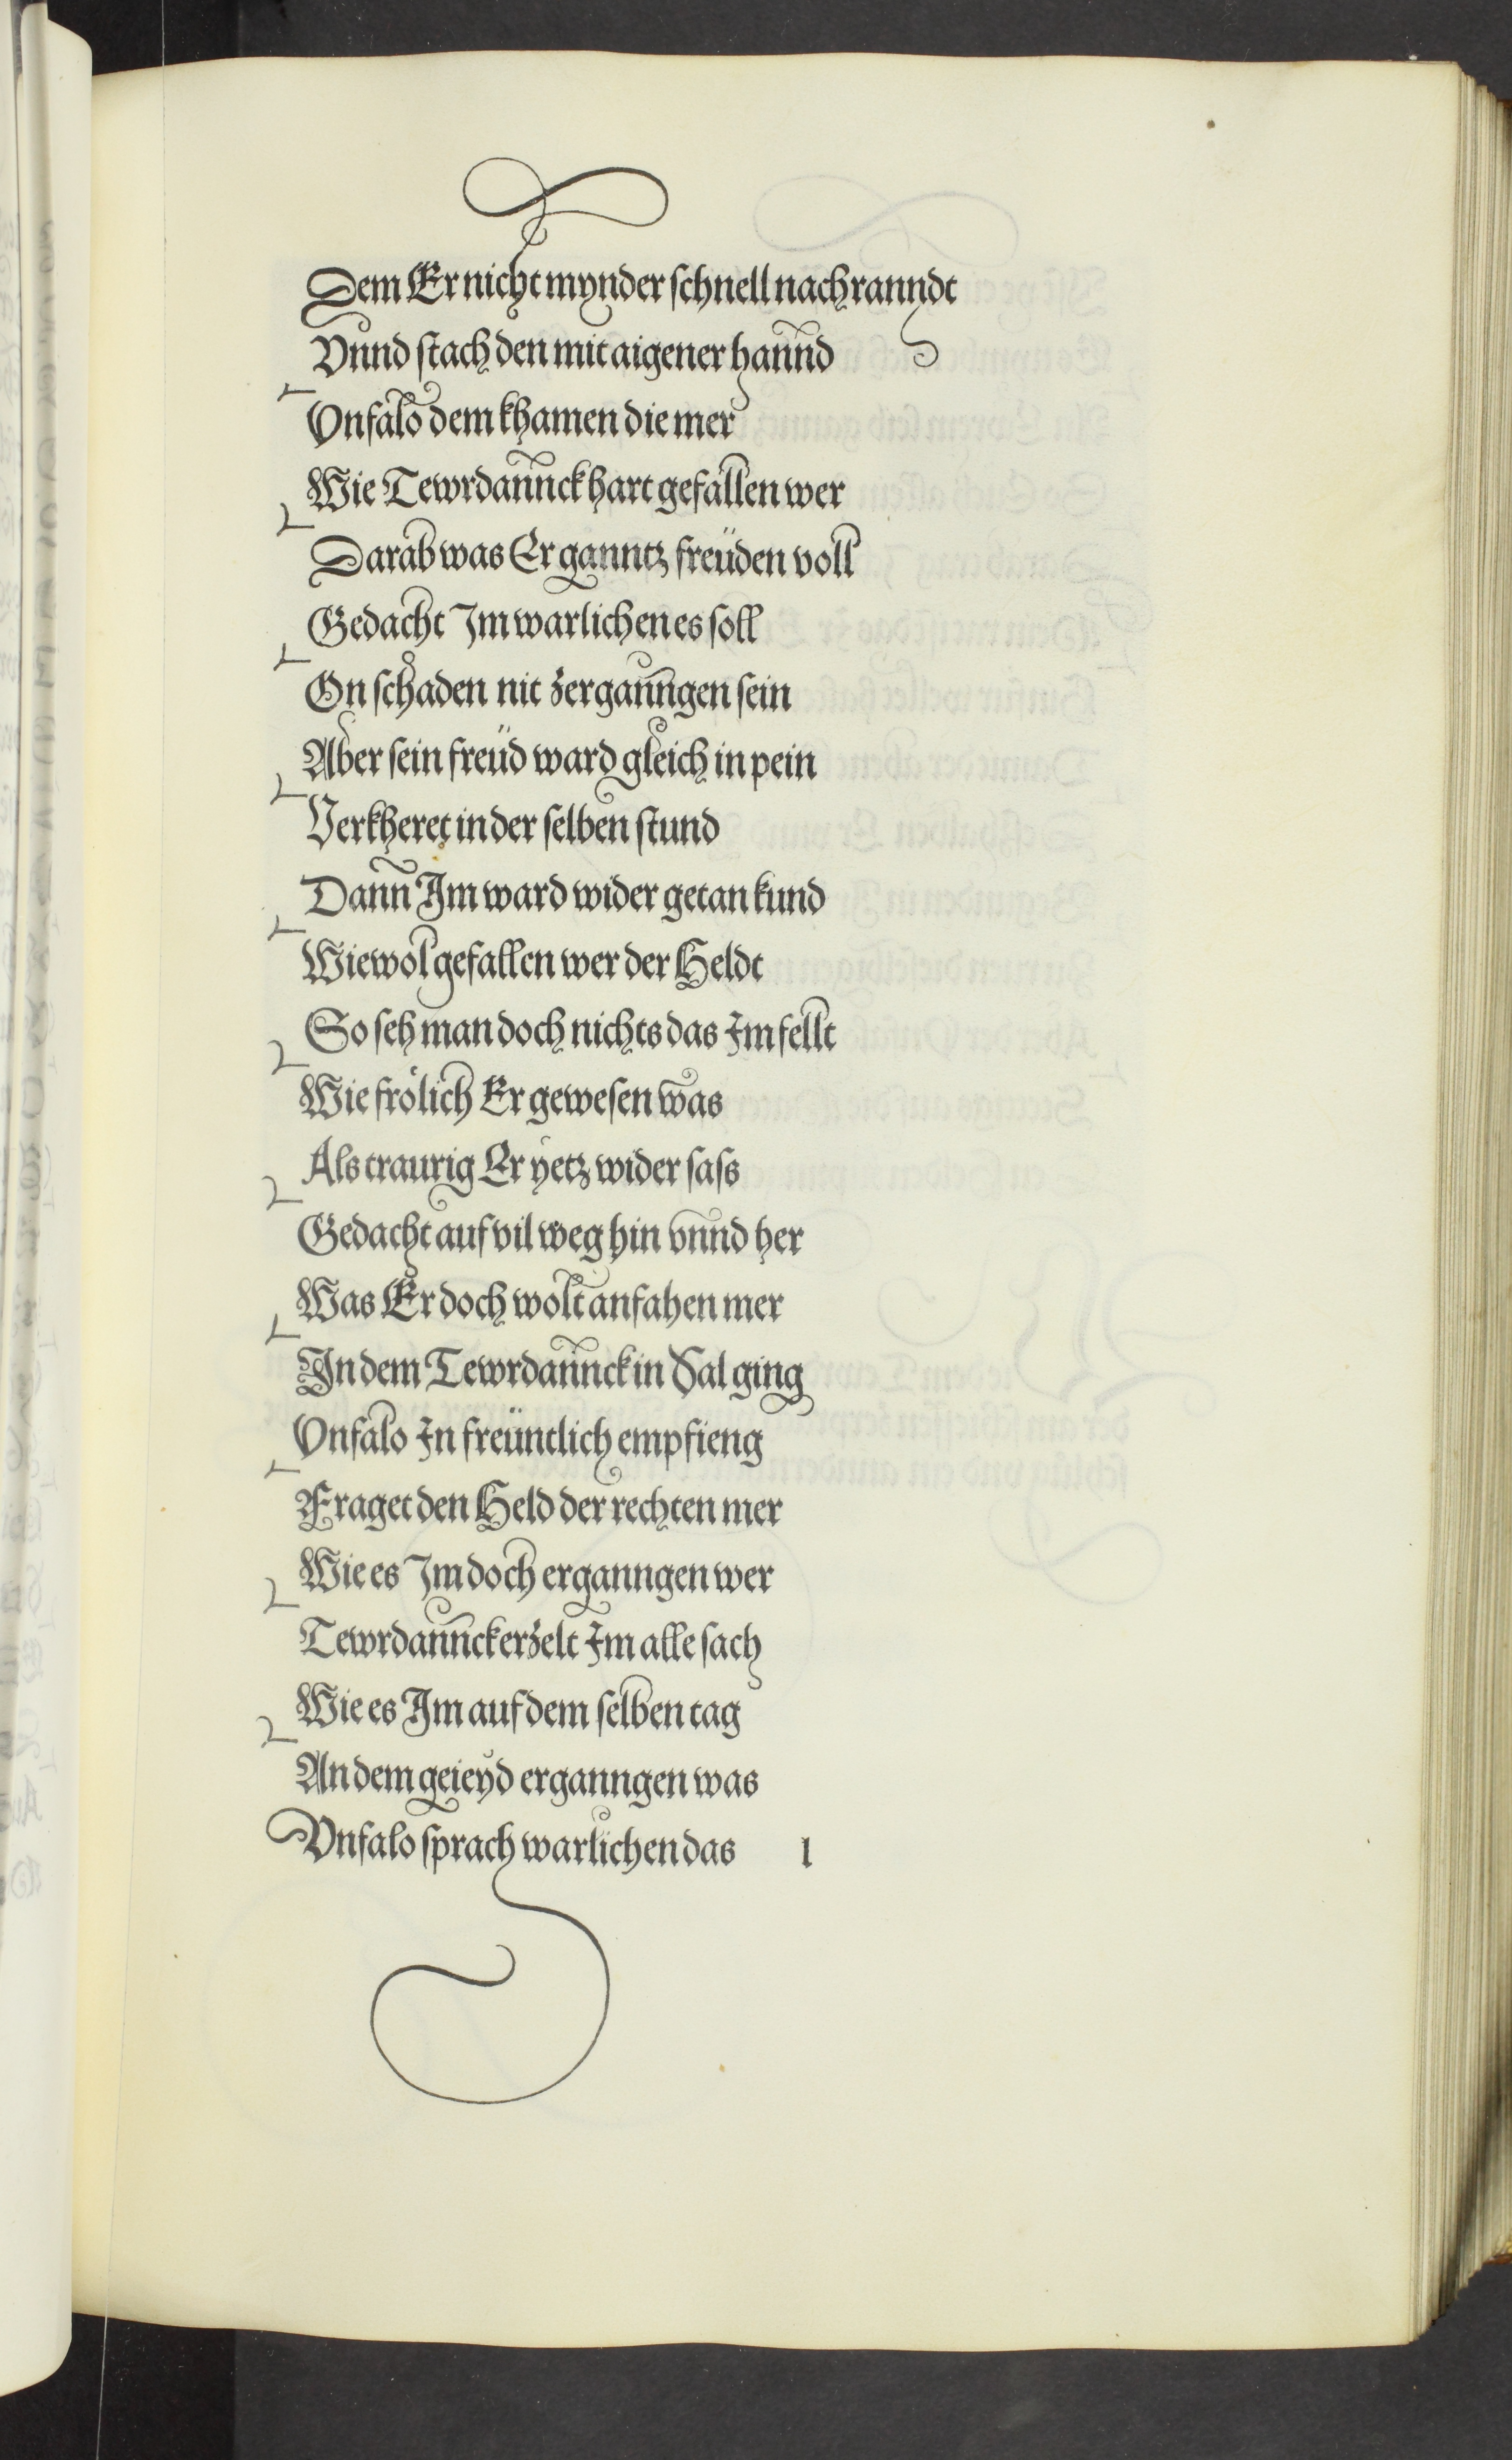 Dem Er nicht mynder schnell nach ranndt
Vnnd stach den mit aigener hannd
Vnfalo dem khamen die mer
Wie Tewrdannck hart gefallen wer
Darab was Er ganntz freüden voll
Gedacht Im warlichen es soll
On schaden nit zergaungen sein
Aber sein freüd ward gleich in pein
Verkheret in der selben stund
Dann Im ward wider getan kund
Wiewol gefallen wer der Heldt
So seh man doch nichts das Im fellt
Wie frölich Er gewesen was
Als traurig Er yetz wider sass
Gedacht auf vil weg hin vnnd her
Was Er doch wolt anfahen mer
In dem Tewrdannck in Sal ging
Vnfalo In freüntlich empfieng
Fraget den Held der rechten mer
Wie es Im doch erganngen wer
Tewrdannck erzelt Im alle sach
Wie es Im auf dem selben tag
An dem geieyd erganngen was
Vnfalo sprach warlichen das l